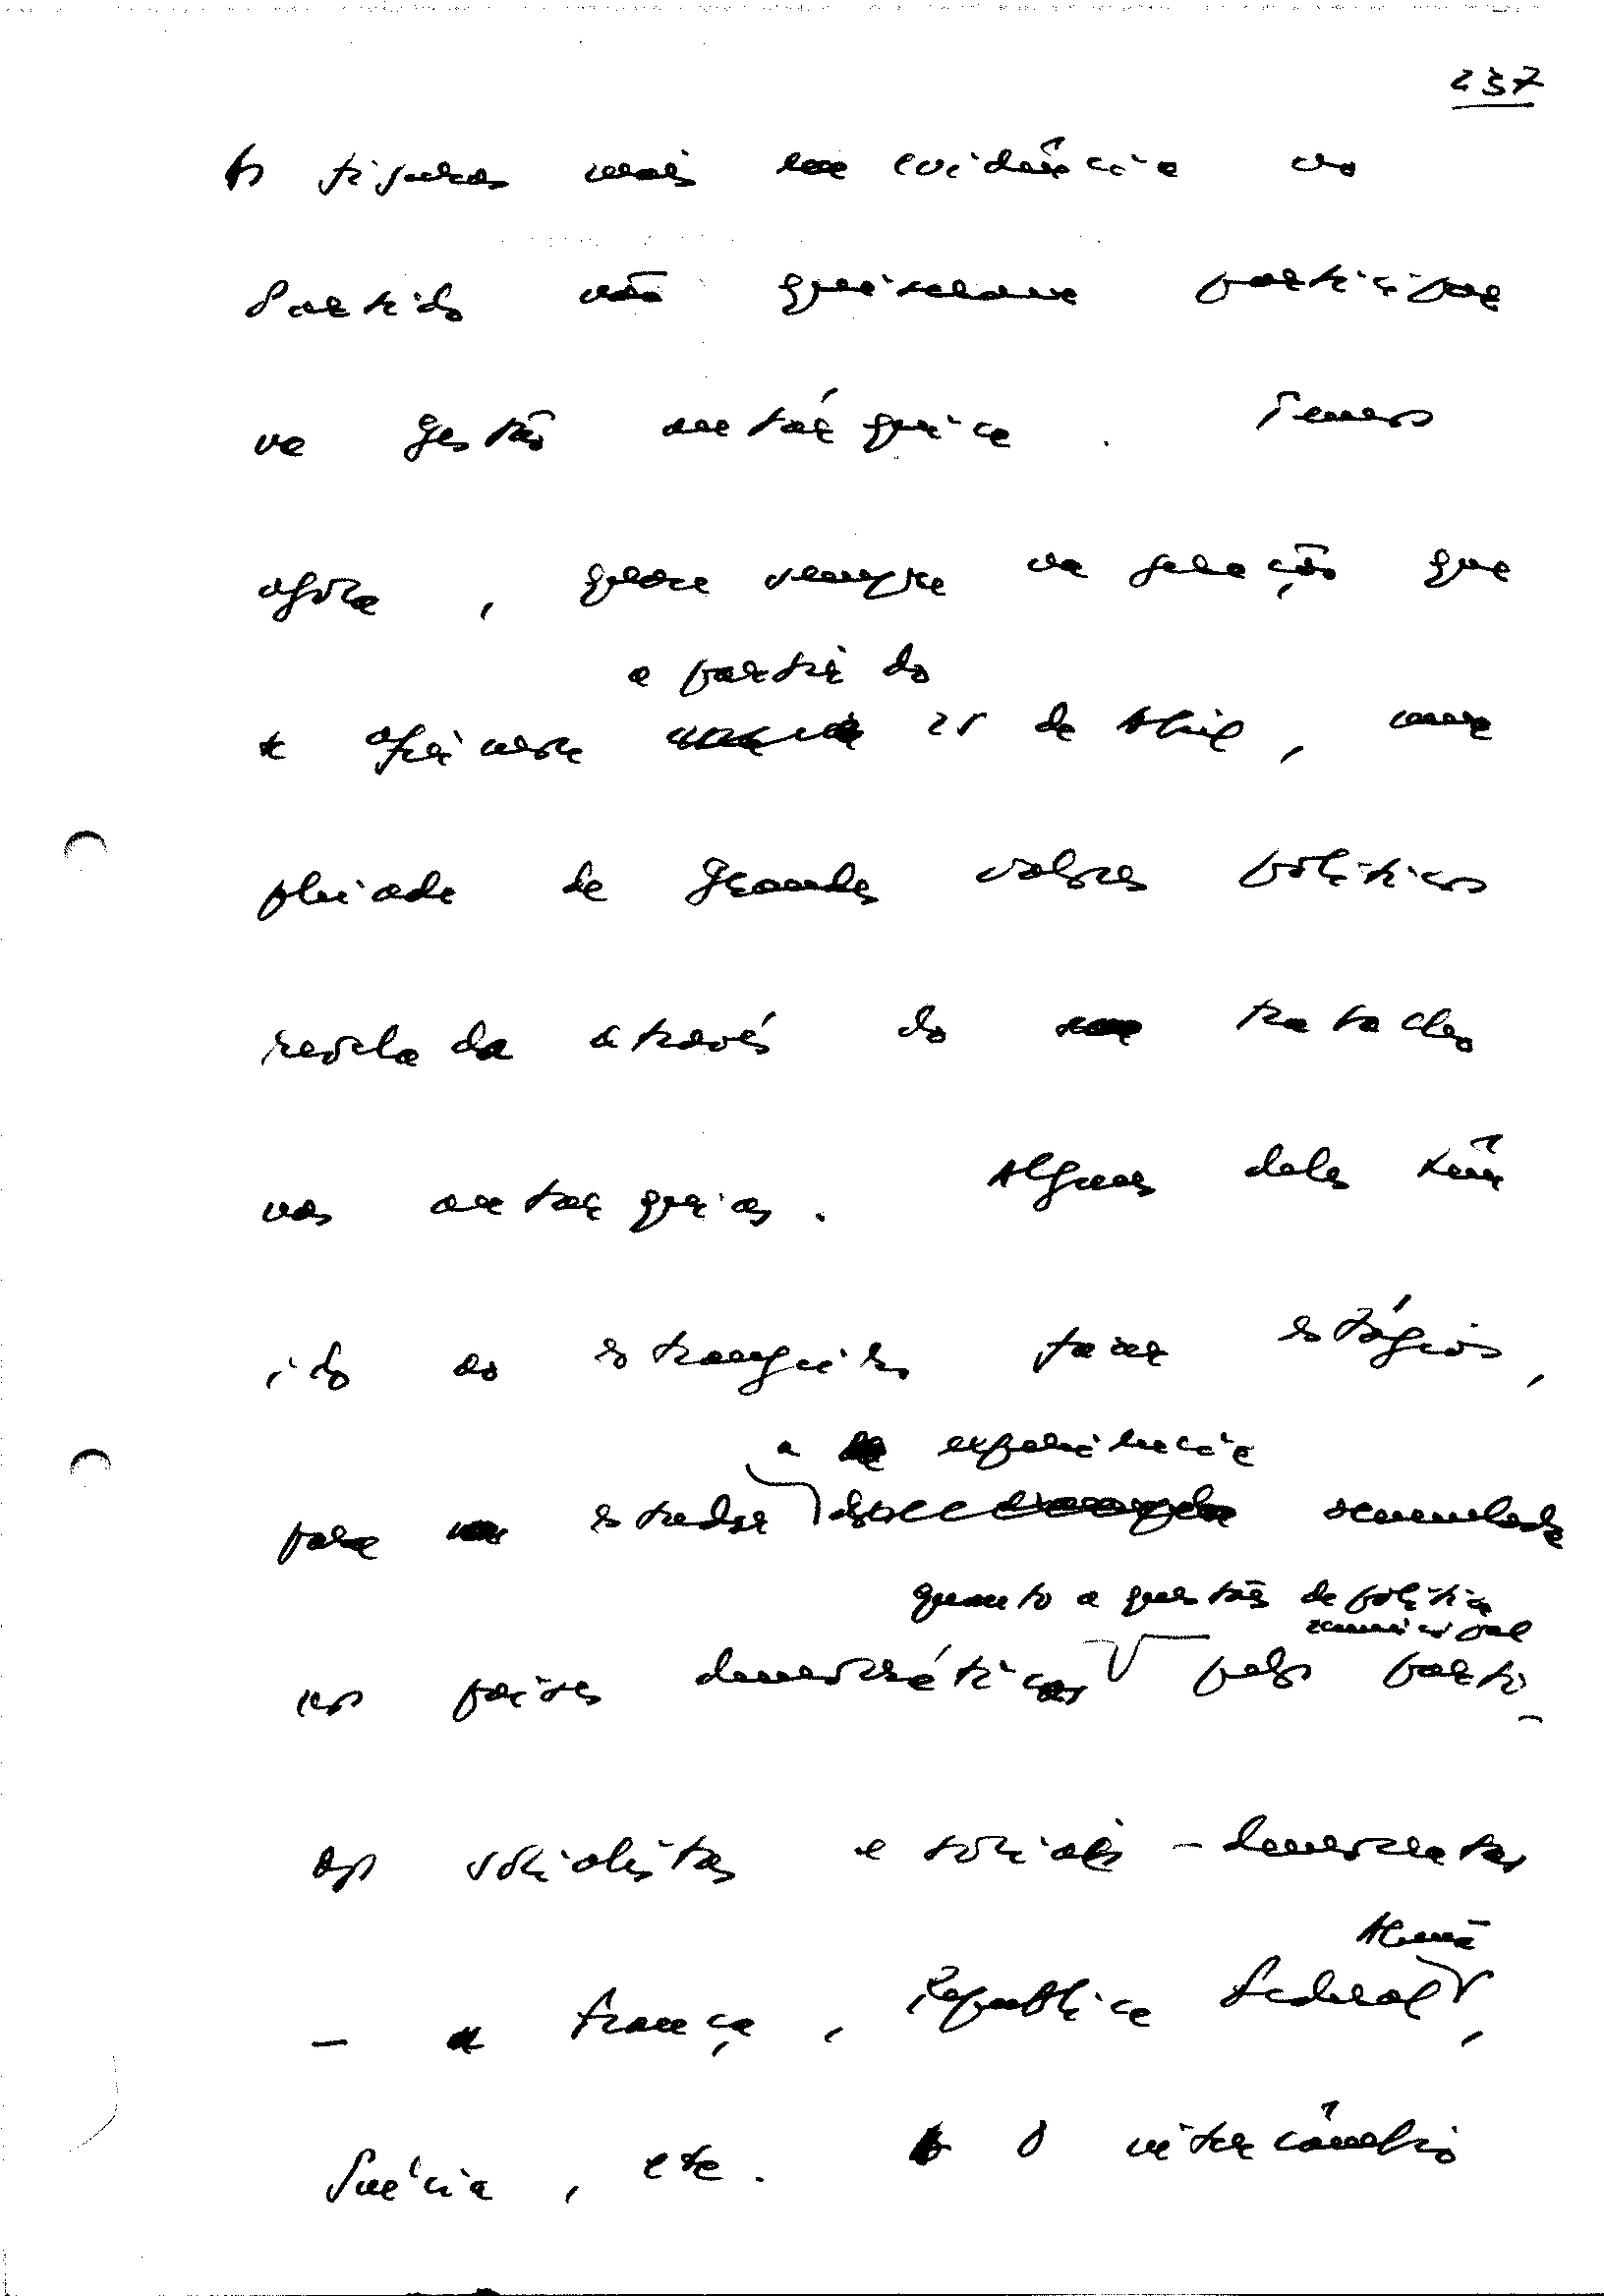 237
As figuras mais em evidência no
Partido não quiseram participar
na gestão autárquica. Temos
agora, quase sempre na geração que
a partir do
se afirmou 25 de Abril, uma
pleiade de grandes valores políticos
revelada através do trabalho
nas autarquias. Alguns deles têm
ido ao estrangeiro fazer estágios,
a experiência
para estudar acumulada
quanto a questões de política
municipal
nos países democráticos pelos parti-
dos socialistas e sociais-democratas
Alemã
- França, República Federal,
Suécia, etc. O intercâmbio